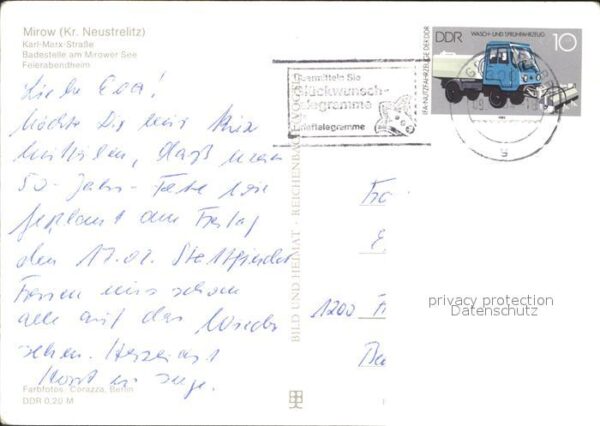 Mirow (Kr. Neustrelitz)
Karl-Marx-Straße
Badestelle am Mirower See
Feierabendheim
Liebe Eva!
Möchte Dir nur kurz
mitteilen, daß unsere
50-Jahr-Feier wie
geplant am Freitag
den 17.02. stattfindet
Freuen uns schon
alle auf das Wieder
sehen. Herzlichst
Horst
Farbfotos: Corazza, Berlin
DDR 0,20 M
BILD UND HEIMAT · REICHENBACH
Übermitteln Sie
Glückwunsch-
telegramme
Brieftelegramme
DDR
WASCH- UND SPRÜHFAHRZEUG
10
IFA-NUTZFAHRZEUGE DER DDR
1200
privacy protection
Datenschutz